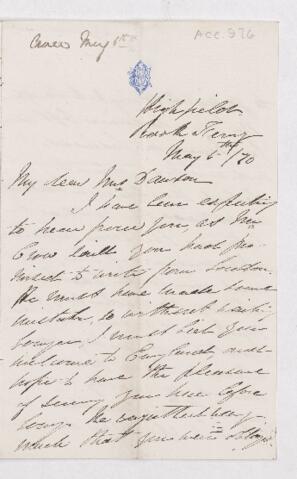 Ansd May 6th
ACC. 976
Highfield
Rock Ferry
May 6th/70
My dear Mrs Dawson
I have been expecting
to hear from you, as Mr
said you had pro-
mised to write from London.
He must have made some
mistake, so without waiting
longer, I must bid you
welcome to England, and
hope to have the pleasure
of seeing you here before
long. We regretted very
much that you were oblig